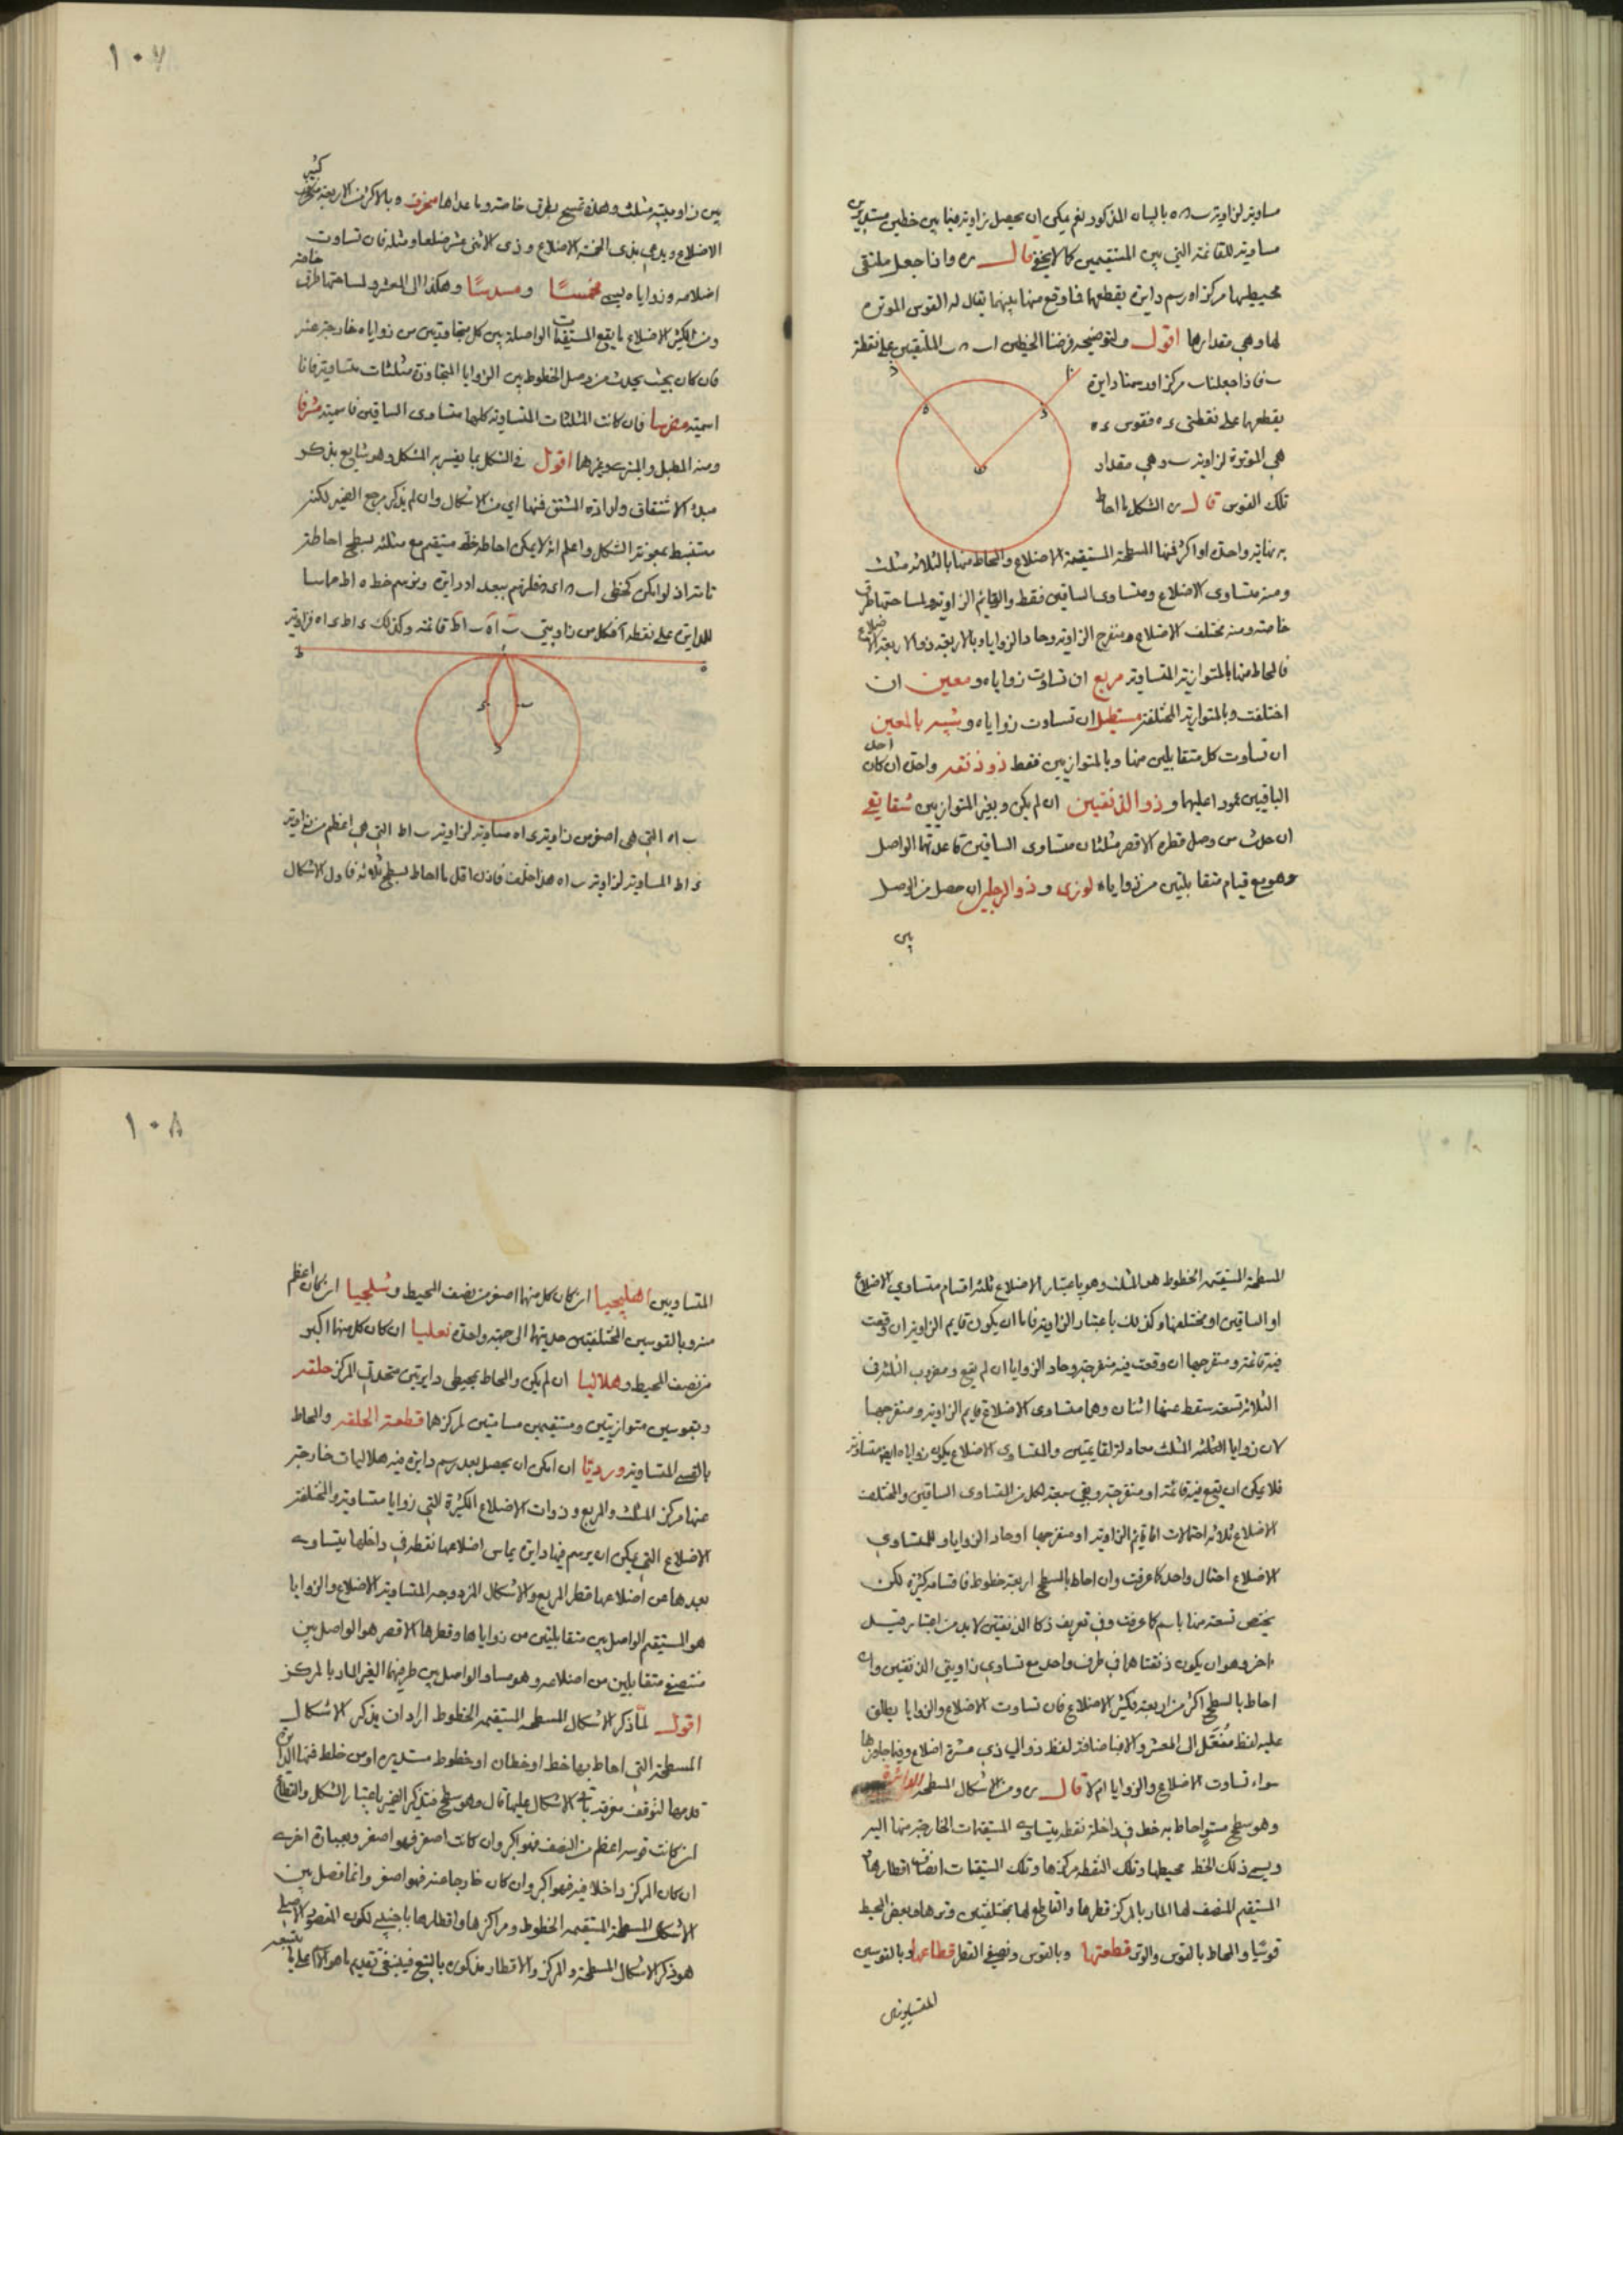 مساوية لزاوية ب ح ه بالبيان المذكور نعم يمكن ان يحصل زاوية فيما بين خطين مستديرين
مساوية للقائمة التي بين المستقيمين كما لا يخفى قال ره واذا جعل ملتقى
محيطيها مركزا ورسم دايرة يقطعها فما وقع منها بينهما يقال له القوس الموترة
لها وهي مقدارها اقول ولتوضيحه فرضنا الخطين ا ب ح ب الملتقيين على نقطة
ب فاذا جعلنا ب مركزا ورسمنا دايرة
يقطعها على نقطتي ء ه فقوس ء ه
هي الموترة لزاوية ب وهي مقدار
تلك القوس قال ره الشكل ما احاط
به نهاية واحدة او اكثر فمنها المسطحة المستقيمة الاضلاع والمحاط منها بالثلاثة مثلث
ومنه متساوى الاضلاع ومتساوى الساقين فقط والقائم الزاوية ولمساحتها طرق
خاصة ومنه مختلف الاضلاع ومنفرج الزاوية وحاد الزوايا وبالاربعة ذو الاربعة الاضلاع
فالمحاط منها بالمتوازية المتساوية مربع ان تساوت زواياه ومعين ان
اختلفت وبالمتوازية المختلفة مستطيل ان تساوت زواياه وشبيه بالمعين
ان تساوت كل متقابلين منها وبالمتوازيين فقط ذو ذنقة واحدة ان كان احد
الباقيين عمودا عليهما وذو الذنقتين ان لم يكن وبغير المتوازيين شقايقي
ان حدث من وصل قطره الاقصر مثلثان متساوى الساقين قاعدتهما الواصل
وهو مع قيام متقابلتين من زواياه لوزى وذو الرجلين ان حصل من الوصل
بين
١٠٧
بين زاويتيه مثلث وهذه تمسح بطرق خاصة وما عداها منحرف وبالاكثر من الاربعة كثير
الاضلاع ويدعى بذى الخمسة الاضلاع وذى الاثنى عشر ضلعا ومثله فان تساوت
اضلاعه وزواياه يسمى مخمسًا ومسدسًا وهكذا الى المعشر ولمساحتها طرق خاصة
ومن الكثير الاضلاع ما يقع المستقيمات الواصلة بين كل متجاورتين من زواياه خارجة عنه
فان كان بحيث يحدث من وصل الخطوط بين الزوايا المتجاورة مثلثات متساوية فانا
اسميته مضرسا فان كانت المثلثات المتساوية كلها متساوى الساقين فاسميته مشرفا
ومنه المطبل والمنبرى وغيرها اقول في الشكل بما يفسر به المشكل وهو شايع بذكر
مبدء الاشتقاق وارادة المشتق فمنها اي من الاشكال وان لم يذكر مرجع الضمير لكنه
مستنبط بمعونة الشكل واعلم انه لا يمكن احاطة خط مستقيم مع مثله بسطح احاطة
تامة اذ لو امكن كخطى ا ب ح ا ى ح فلنرسم ببعد ا ح دايرة ونرسم خط ه ا ط مماسا
للدايرة على نقطة ا فكل من زاويتي ب ا ه ب ا ط قائمة وكذلك ى ا ط ى ا ه فزاوية
ب ا ه التي هي اصغر من زاوية ى ا ه مساوية لزاوية ب ا ط التي هي اعظم من زاوية
ى ا ط المساوية لزاوية ب ا ه هذا خلف فاذن اقل ما احاط بسطح ثلاثة فاول الاشكال
المسطحة المستقيمة الخطوط هو المثلث وهو باعتبار الاضلاع ثلثة اقسام متساوى الاضلاع
او الساقين او مختلفها وكذلك باعتبار الزاوية فاما ان يكون قايم الزاوية ان وقعت
فيه قائمة ومنفرجها ان وقعت فيه منفرجة وحاد الزوايا ان لم يقع ومضروب الثلثة في
الثلاثة تسعة سقط عنها اثنان وهما متساوى الاضلاع قايم الزاوية ومنفرجها
لان زوايا الثلثة المثلث معادلة لقايمتين والمتساوى الاضلاع يكون زواياه ايضا متساوية
فلا يمكن ان يقع فيه قائمة او منفرجة وبقى سبعة لكل من المتساوى الساقين والمختلف
الاضلاع ثلاثة احتمالات اما قايم الزاوية او منفرجها او حاد الزوايا وللمتساوي
الاضلاع احتمال واحد كما عرفت وان احاط بالسطح اربعة خطوط فاقسامه كثيرة لكن
يختص تسعة منها باسم كما عرفت وفي تعريف ذكا الذنقتين لا بد من اعتبار قيد
اخر وهو ان يكون ذنقتاه في طرف واحد مع تساوى زاويتي الذنقتين وان
احاط بالسطح اكثر من اربعة فكثير الاضلاع فان تساوت الاضلاع والزوايا يطلق
عليه لفظ مُفَعّل الى المعشر والا فباضافة لفظ ذو الي ذي عشرة اضلاع وفيما جاوزها
سواء تساوت الاضلاع والزوايا ام لا قال ره ومن الاشكال المسطحة الدائرة
وهو سطح مستوٍ احاط به خط في داخله نقطة يتساوى المستقيمات الخارجة منها اليه
ويسمى ذلك الخط محيطها وتلك النقطة مركزها وتلك المستقيمات انصاف اقطارها و
المستقيم المنصف لها المار بالمركز قطرها والقاطع لها بمختلفين وترها وبعض المحيط
قوسًا والمحاط بالقوس والوتر قطعتها وبالقوس ونصفى القطر قطاعها وبالقوسين
المتساويين
١٠٨
المتساويين اهليلجيا ان كان كل منهما اصغر من نصف المحيط وشلجميا ان كان اعظم
منه وبالقوسين المختلفتين حدبتهما الى جهة واحدة نعليا ان كان كل منهما اكبر
من نصف المحيط وهلاليا ان لم يكن والمحاط بمحيطى دايرتين متحدتى المركز حلقة
وبقوسين متوازيتين ومستقيمين مسامتين لمركزهما قطعة الحلقة والمحاط
بالقسى المتساوية ورديًا ان امكن ان يحصل بعد رسم دايرة فيه هلاليات خارجة
عنها مركز المثلث والمربع وذوات الاضلاع الكثيرة التي زوايا متساوية والمختلفة
الاضلاع التي يمكن ان يرسم فيها دايرة يماس اضلاعها نقطة في داخلها يتساوى
بعدها من اضلاعها قطر المربع والاشكال المزدوجة المتساوية الاضلاع والزوايا
هو المستقيم الواصل بين متقابلتين من زواياها وقطرها الاقصر هو الواصل بين
منتصفى متقابلين من اضلاعه وهو مساو الواصل بين طرفيهما الغير المار بالمركز
اقول لمّا ذكر الاشكال المسطحة المستقيمة الخطوط اراد ان يذكر الاشكال
المسطحة التي احاط بها خط او خطان او خطوط مستديره او من خلط فمنها الدايرة
قدمها لتوقف معرفة باقى الاشكال عليها قال وهو سطح فتذكير الضمير باعتبار الشكل والقطاع
ان كانت قوسه اعظم من النصف فهو اكبر وان كانت اصغر فهو اصغر وبعبارة اخرى
ان كان المركز داخلا فيه فهو اكبر وان كان خارجا عنه فهو اصغر وانما فصل بين
الاشكال المسطحة المستقيمة الخطوط ومراكزها واقطارها باجنبي لكون المقصود الاصلى
هو ذكر الاشكال المسطحة والمركز والاقطار مذكوره بالتبع فينبغى تقديم ما هو الاصل